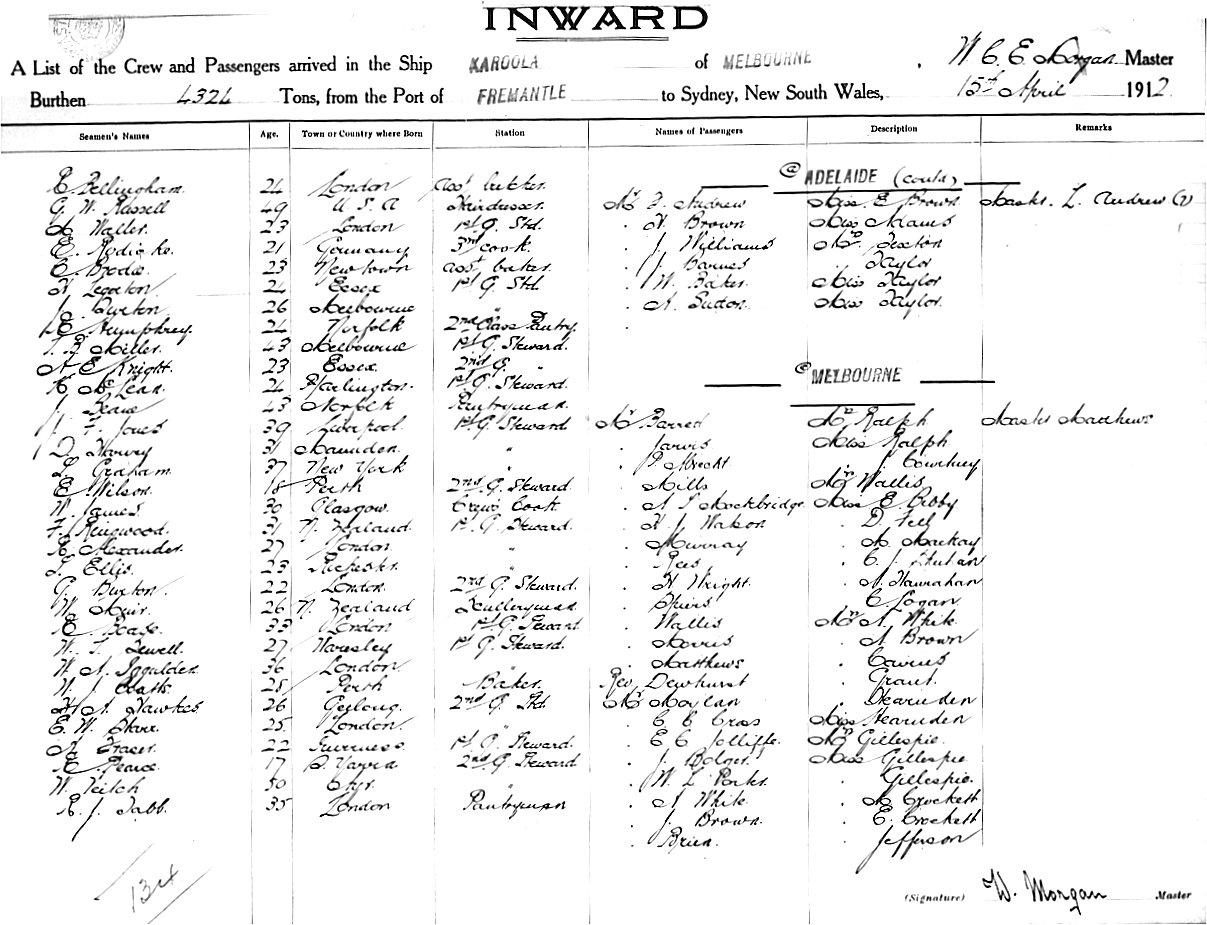 INWARD
A List of the Crew and Passengers arrived in the Ship KAROOLA of MELBOURNE, W C E Morgan Master
Burthen 4324 Tons, from the Port of FREMANTLE to Sydney, New South Wales, 15th April 1912
Seamen's Names Age. Town or Country where Born Station Names of Passengers Description Remarks
@ ADELAIDE (contd)
E. Bellingham 24 London asst butcher
G. W. Russell 49 U.S.A Hairdresser Mr F. Andrew Miss E Brown Master L. Andrew
H Waller 23 London 1st G. Std. " H Brown Miss Adams
E. 21 Germany 3rd cook " J Williams Mrs Sexton
E Brodie 23 Newtown asst baker " J Barnes " Taylor
H 24 Essex 1st G. Std " W. Baker Miss Taylor
J. Burton 26 Melbourne " " A. Sutton Miss Taylor
E Humphrey 24 Norfolk 2nd Class Pantry
T. B. Miller 43 Melbourne 1st G. Steward.
A E Knight 23 Essex 2nd G. "
@ MELBOURNE
McLean 24 Harlington 1st G. Steward.
J. 43 Norfolk Pantryman
J. F. Jones 39 Liverpool 1st G Steward Mr Barred Mrs Ralph Master Matthews
D. Harvey 31 " " Jarvis Miss Ralph
L. Graham 37 New York " " " J. Courtney
E Wilson 18 Perth 2nd G. Steward " Mills Mrs Wallis
W. James 30 Glasgow Crew's Cook " A Mockbridge Miss E Bibby
F. Ringwood 31 N. Zealand 1st G. Steward " H J " D. Fell
Alexander 27 London " " Murray " A. Mackay
T. Ellis 23 " " Rees " C. J.
G. Burton 22 London 2nd G. Steward " H Wright " A. Hanrahan
W. Muir 26 N. Zealand Sculleryman " Spiers " C Logan
33 London 1st G. Steward " Wallis Mrs A. White
W. T. Sewell 27 Waresley 1st G. Steward. " Morris " A Brown
W. A. Iggulden 36 London " Matthews " Cairns
W. J. Watts 25 Perth Baker Rev Dewhurst " Grant
H A Hawkes 26 Geelong 2nd G. Std Mr Moylan " Hearnden
E. W. 25 London " " C C Cross Miss Hearnden
A Fraser 22 Inverness 1st G. Steward " E C Jolliffe Mrs Gillespie
Pearce 17 S. Yarra 2nd G Steward " J Bolger Miss Gillespie
W. Veitch 50 " W. L. Parks " Gillespie
J. Tabb 35 London Pantryman " A White " A Crockett
" J. Brown " E. Crockett
" Brien " Jefferson
134
(Signature) W. Morgan Master